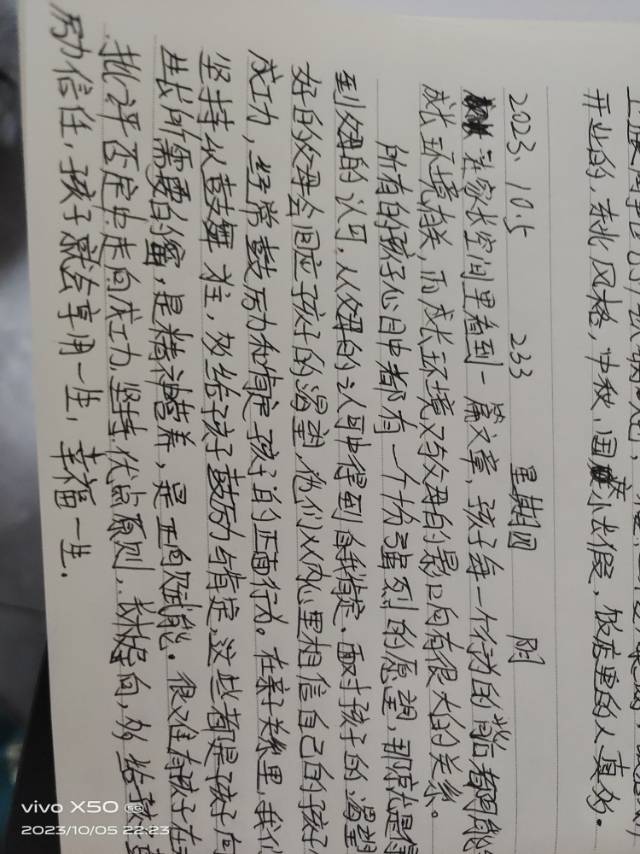 开业的，东北风格，中秋，国庆小长假，饭店里的人真多。
2023、10.5 233 星期四 阴
在家长空间里看到一篇文章，孩子每一个行为的背后都可能
成长环境相关，而成长环境又与父母的影响有很大的关系。
所有的孩子心目中都有一个十分强烈的愿望，那就是得
到父母的认可，从父母的认可中得到自我肯定，面对孩子的渴望
好的父母会回应孩子的渴望，他们从内心里相信自己的孩子
成功，经常鼓励和肯定孩子的正面行为。在亲子关系里，我们
坚持以鼓舞为主，多给孩子鼓励与肯定，这些都是孩子向
生长所需要的蜜，是精神营养，是正向赋能。很难有孩子在
批评否定中走向成功，坚持优点原则，长板导向，多给孩子
励信任，孩子就会享用一生，幸福一生.
vivo X50 5G
2023/10/05 22:23